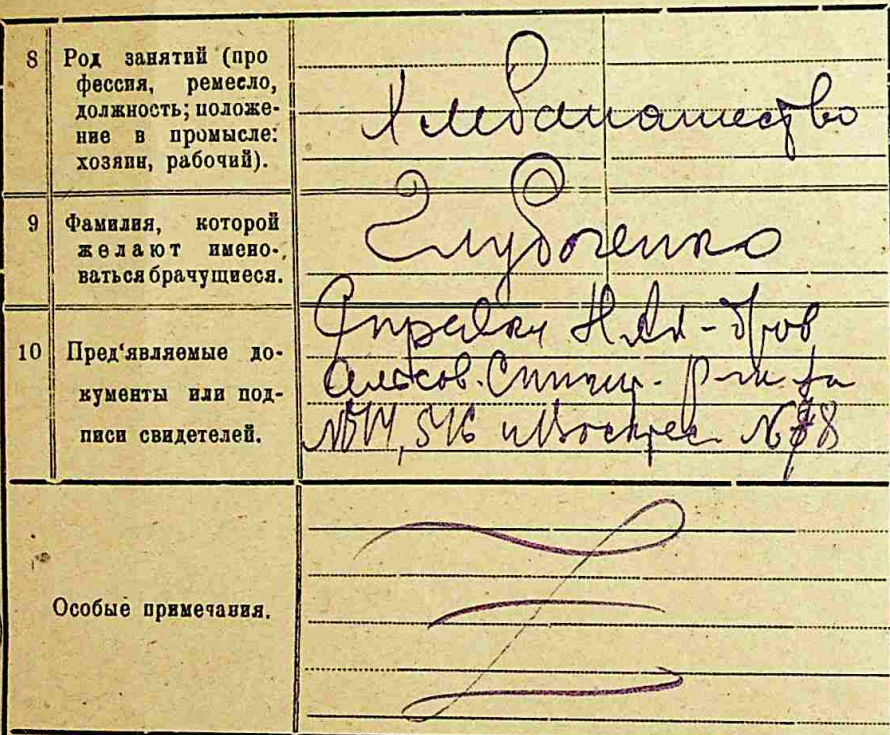 8 Род занятий (про
фессия, ремесло,
должность; положе-
ние в промысле:
хозяин, рабочий).
Хлебопашество
9 Фамилия, которой
желают имено-
ваться брачущиеся.
Глубоченко
10 Пред'являемые до-
кументы или под-
писи свидетелей.
Справки
р-на за
546 и Воскрес № 78
Особые примечания.